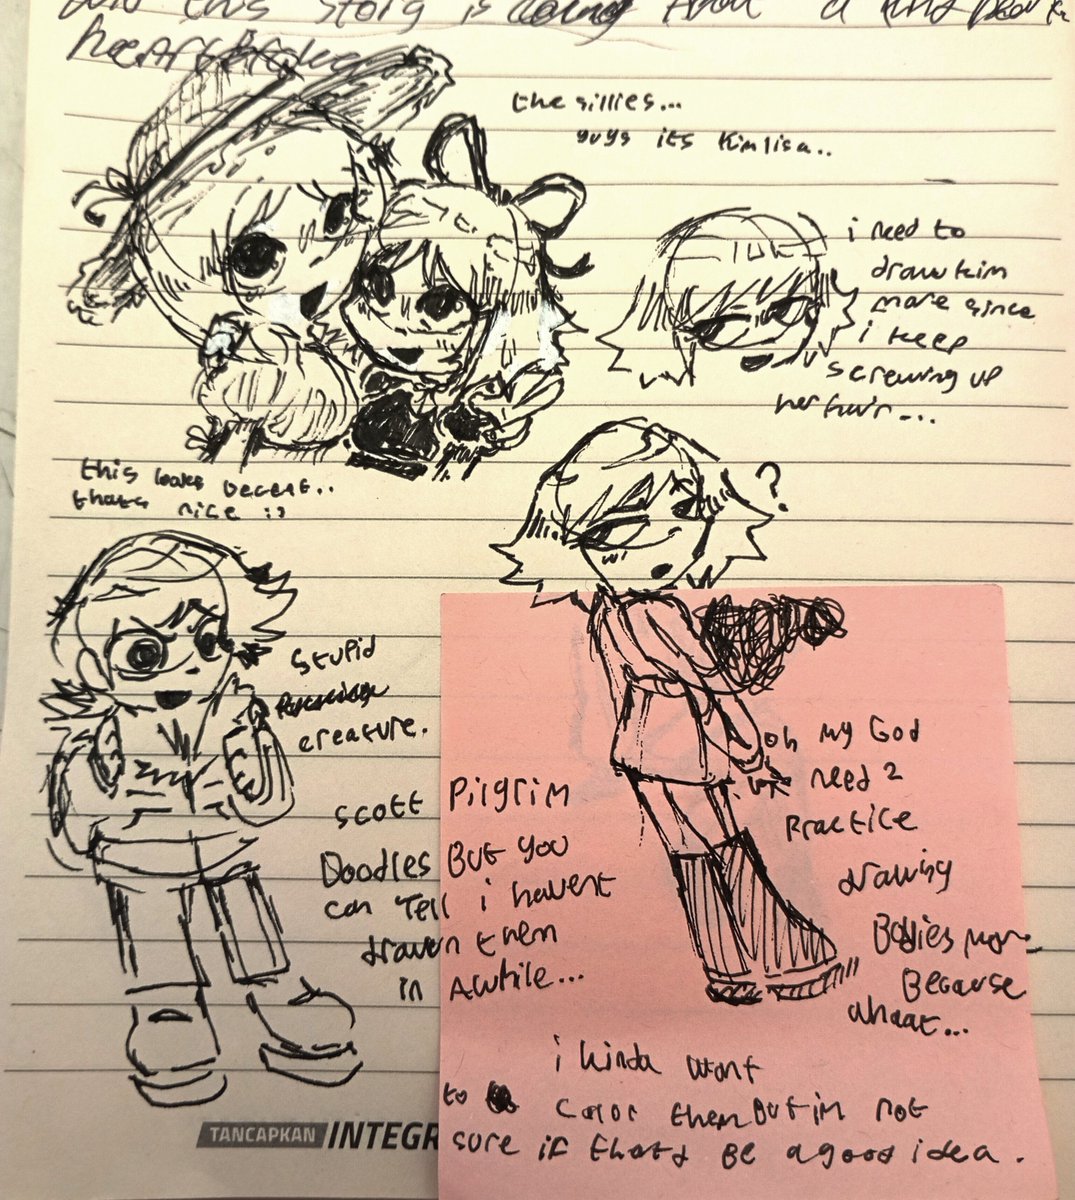 this story is
the sillies...
guys its Kimlisa..
i need to
draw kim
more since
i keep
screwing up
her hair...
this looks decent..
thats nice :)
?
stupid
creature.
scott Pilgrim
Doodles But you
can Tell i havent
drawn them
in Awhile...
oh my God
i need 2
Practice
drawing
Bodies more
Because
whaat...
i kinda want
to color them But im not
sure if thatd Be a good idea.
TANCAPKAN INTEGR